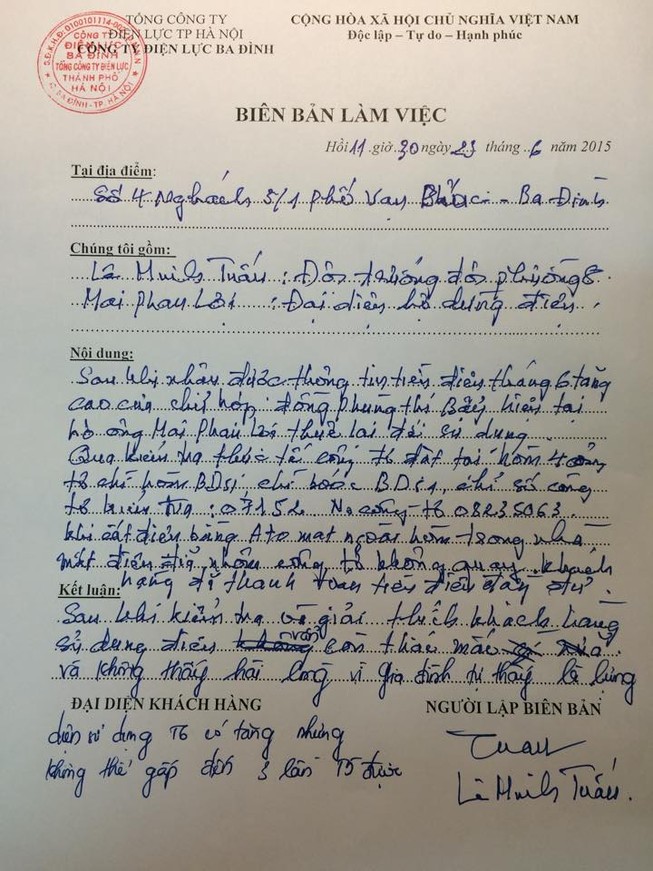 TỔNG CÔNG TY
ĐIỆN LỰC TP HÀ NỘI
CÔNG TY ĐIỆN LỰC BA ĐÌNH
CỘNG HÒA XÃ HỘI CHỦ NGHĨA VIỆT NAM
Độc lập – Tự do – Hạnh phúc
CÔNG TY
ĐIỆN LỰC
BA ĐÌNH
TỔNG CÔNG TY ĐIỆN LỰC
THÀNH PHỐ
HÀ NỘI
Q. BA ĐÌNH - TP. HÀ NỘI
BIÊN BẢN LÀM VIỆC
Hồi 11 giờ 30 ngày 23 tháng 6 năm 2015
Tại địa điểm:
Số 4 Nghách 5/1 phố Vạn Phúc - Ba Đình
Chúng tôi gồm:
Lê Minh Tuấn : Đội trưởng đội
Mai Phan Lợi : Đại diện hộ dùng điện
Nội dung:
Sau khi nhận được thông tin tiền điện tháng 6 tăng
cao của chủ hợp đồng Phùng thị Bẩy hiện tại
hộ ông Mai Phan Lợi thực tại đang sử dụng
Qua kiểm tra thực tế công tơ đặt tại hòm 4 công
tơ chì hòm BD51 chì BD51, chỉ số công
tơ kiểm tra : 07152 No công tơ 08235063
khi cắt điện bằng Atomat ngoài hòm trong nhà
mất điện công tơ không quay. khách
hàng đã thanh toán tiền điện đầy đủ.
Kết luận:
Sau khi kiểm tra và giải thích khách hàng
sử dụng điện vẫn còn thắc mắc
và không thấy hài lòng vì gia đình tự thấy là lùng
ĐẠI DIỆN KHÁCH HÀNG
NGƯỜI LẬP BIÊN BẢN
điện sử dụng T6 có tăng nhưng
không thể gấp đến 3 lần T5 được
Lê Minh Tuấn.